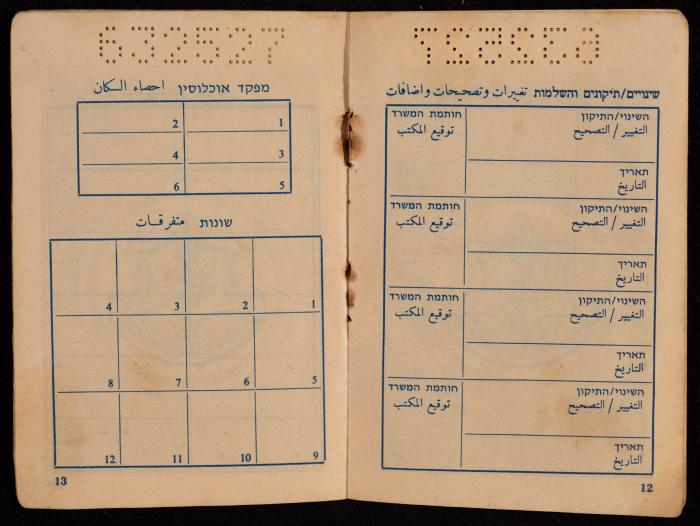 632527
שינויים/תיקונים והשלמות تغييرات وتصحيحات واضافات
השינוי/התיקון חותמת המשרד
التغيير / التصحيح توقيع المكتب
תאריך
التاريخ
השינוי/התיקון חותמת המשרד
التغيير / التصحيح توقيع المكتب
תאריך
التاريخ
השינוי/התיקון חותמת המשרד
التغيير / التصحيح توقيع المكتب
תאריך
التاريخ
השינוי/התיקון חותמת המשרד
التغيير / التصحيح توقيع المكتب
תאריך
التاريخ
12
632527
מפקד אוכלוסין احصاء السكان
1 2
3 4
5 6
שונות متفرقات
1 2 3 4
5 6 7 8
9 10 11 12
13